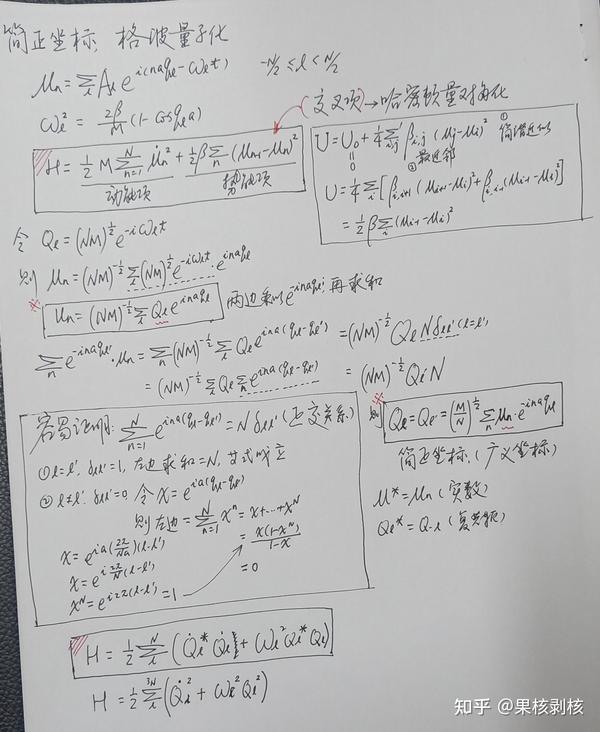 简正坐标、格波量子化
μn = Σl Al e^{i(naql - ωlt)}   -N/2 ≤ l < N/2
ωl² = 2β/M (1 - cos qla)
(交叉项) → 哈密顿量对角化
H = 1/2 M Σ_{n=1}^{N} μ̇n² + 1/2 β Σn (μn+1 - μn)²
动能项 势能项
U = U0 + 1/4 Σ'i,j βi,j (μj - μi)² ① 简谐近似
0 ② 最近邻
U = 1/4 Σi [βi,i+1 (μi+1 - μi)² + βi,i-1 (μi-1 - μi)²]
= 1/2 β Σi (μi+1 - μi)²
令 Ql = (NM)^{1/2} e^{-iωlt}
则 μn = (NM)^{-1/2} Σl (NM)^{1/2} e^{-iωlt} · e^{inaql}
※ μn = (NM)^{-1/2} Σl Ql e^{inaql} 两边乘以 e^{-inaql'} 再求和
Σn e^{-inaql'} · μn = Σn (NM)^{-1/2} Σl Ql e^{ina(ql - ql')} = (NM)^{-1/2} Ql N δll' (l=l')
= (NM)^{-1/2} Σl Ql Σn e^{ina(ql - ql')} = (NM)^{-1/2} Ql' N
容易证明: Σ_{n=1}^{N} e^{ina(ql - ql')} = N δll' (正交关系)
① l = l', δll' = 1, 左边求和 = N, 等式成立
② l ≠ l', δll' = 0 令 x = e^{ia(ql - ql')}
则左边 = Σ_{n=1}^{N} x^n = x + ⋯ + x^N
x = e^{ia(2π/Na)(l - l')} = x(1 - x^N)/(1 - x)
x = e^{i 2π/N (l - l')} = 0
x^N = e^{i2π(l - l')} = 1
※ 则 Ql = Ql' = (M/N)^{1/2} Σn μn · e^{-inaql}
简正坐标、(广义坐标)
μ* = μn (实数)
Ql* = Q-l (复共轭)
H = 1/2 Σ_l^N (Q̇l* Q̇l + ωl² Ql* Ql)
H = 1/2 Σ_l^{3N} (Q̇l² + ωl² Ql²)
知乎 @果核剥核